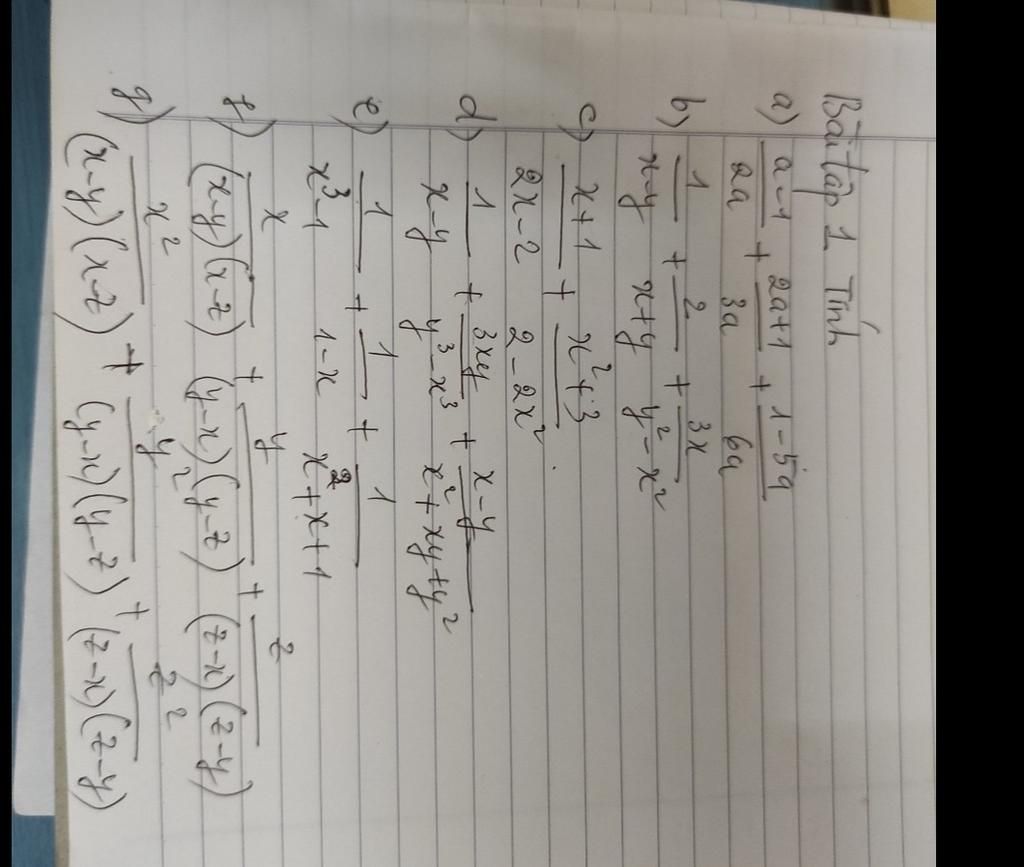 Bài tập 1 Tính
a) \frac{a-1}{2a} + \frac{2a+1}{3a} + \frac{1-5a}{6a}
b) \frac{1}{x-y} + \frac{2}{x+y} + \frac{3x}{y^2-x^2}
c) \frac{x+1}{2x-2} + \frac{x^2+3}{2-2x^2}.
d) \frac{1}{x-y} + \frac{3xy}{y^3-x^3} + \frac{x-y}{x^2+xy+y^2}
e) \frac{1}{x^3-1} + \frac{1}{1-x} + \frac{1}{x^2+x+1}
f) \frac{x}{(x-y)(x-z)} + \frac{y}{(y-x)(y-z)} + \frac{z}{(z-x)(z-y)}
g) \frac{x^2}{(x-y)(x-z)} + \frac{y^2}{(y-x)(y-z)} + \frac{z^2}{(z-x)(z-y)}